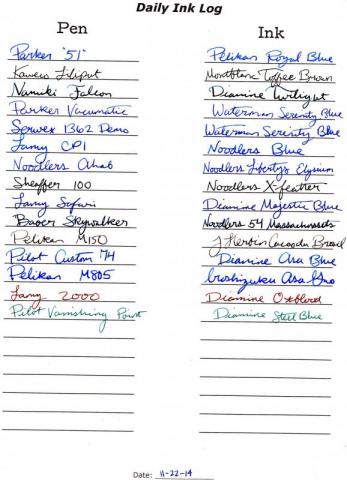 Daily Ink Log
Pen Ink
Parker "51" Pelikan Royal Blue
Kaweco Liliput Montblanc Toffee Brown
Namiki Falcon Diamine Twilight
Parker Vacumatic Waterman Serenity Blue
Serwex 1362 Demo Waterman Serenity Blue
Lamy CP1 Noodlers Blue
Noodlers Ahab Noodlers Liberty's Elysium
Sheaffer 100 Noodlers X-feather
Lamy Safari Diamine Majestic Blue
Baoer Skywalker Noodlers 54 Massachusetts
Pelikan M150 J Herbin Cacao du Bresil
Pilot Custom 74 Diamine Asa Blue
Pelikan M805 Iroshizuku Asa Gao
Lamy 2000 Diamine Oxblood
Pilot Vanishing Point Diamine Steel Blue
Date: 11-22-14